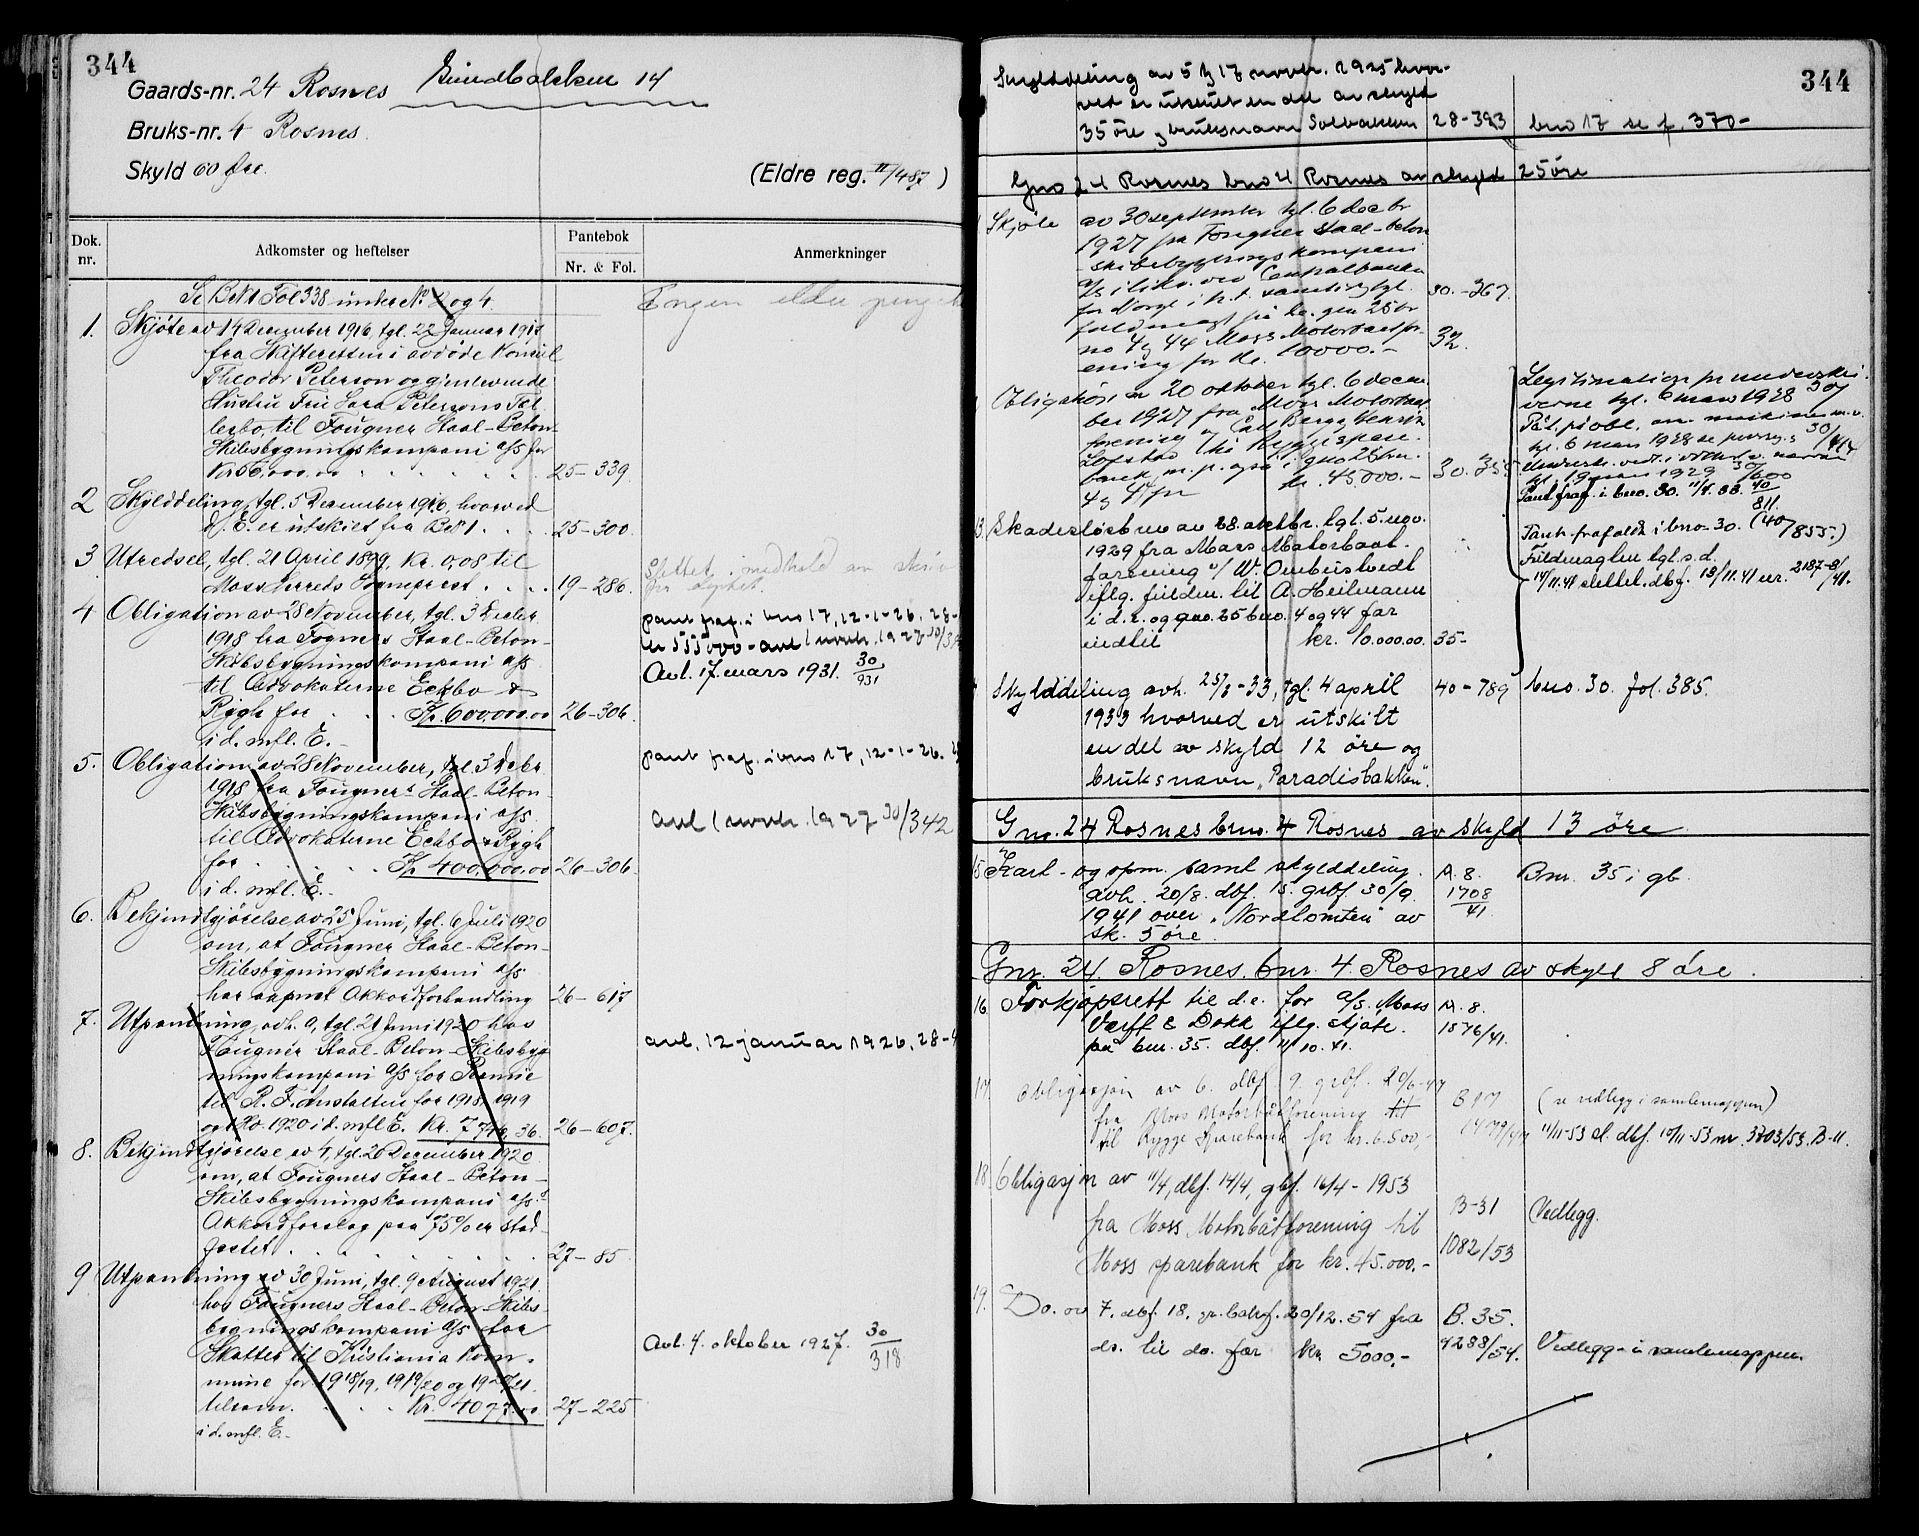 344
Gaards-nr. 24 Rosnes
Bruks-nr. 4 Rosnes.
Skyld 60 Øre.
(Eldre reg. II/487)
Dok. nr.
Adkomster og heftelser
Pantebok
Nr. & Fol.
Anmerkninger
Se BN 1 Fol 338 under No 2 og 4.
Ingen eldre
1. Skjøte av 14 December 1916, tgl. 22 Januar 1917
fra Skifteretten i avdøde Konsul
Theodor Peterson og gjenlevende
Hustru Fru Sara Petersons
til Fougner Staal-Beton-
Skibsbygningskompani a/s for
25-339
2 Skylddeling, tgl. 5 December 1916, hvorved
d. E. er utskilt fra BN 1. . . 25-300.
3 Utredsel, tgl. 21 April 1899, Kr. 0,08 til
Moss Herreds Sogneprest . . . . 19-286.
Slettet i medhold av
4 Obligation av 28 November, tgl. 3 Decbr
1918 fra Fogners Staal-Beton-
Skibsbygningskompani a/s
til Advokaterne Eckbo &
Rygh for . . . Kr. 600.000.00 26-306.
i d. mfl. E.-
pant fraf. i bno 17, 12-1-26, 28-
Avl. 17. mars 1931. 30/931
5. Obligation av 28 November, tgl. 3 Decbr
1918 fra Fougner's Staal-Beton-
Skibsbygningskompani a/s
til Advokaterne Eckbo & Rygh
for . . . . Kr. 400.000.00 26-306.
i d. mfl. E.-
pant fraf. i bno 17, 12-1-26.
avl 1 novbr. 1927 30/342
6. Bekjendtgjørelse av 25 Juni, tgl. 6 Juli 1920
om, at Fougner Staal-Beton-
Skibsbygningskompani a/s
har aapnet Akkordforhandling 26-617
7. Utpantning, avh. 9, tgl. 21 Juni 1920 hos
Fougner Staal-Beton-Skibsbyg-
ningskompani a/s for Præmie
til R. F. Anstalten for 1918, 1919
og 1920 i d. mfl E. Kr. 26-607.
avl. 12 januar 1926, 28-4
8. Bekjendtgjørelse av 4, tgl. 20 December 1920
om, at Fougners Staal-Beton-
Skibsbygningskompani a/s's
Akkordforslag paa 75% er stad-
fæstet . . . . . . 27-85.
9 Utpantning av 30 Juni, tgl. 9 August 1921
hos Fougners Staal-Beton-Skibs-
bygningskompani a/s for
Skatter til Kristiania Kom-
mune for 1918/19, 1919/20 og 1920/21,
tilsam. . . . Kr. 4077.00 27-225
i d. mfl. E.-
Avl. 4. oktober 1927. 30/318
344
Skylddeling av 5 tgl 17 novbr. 1925 hvor-
ved er utskilt en del av skyld
35 öre og bruksnavn Solbakken 28-393 bno 17 se f. 370-
Gno 24 Rosnes bno 4 Rosnes av skyld 25 öre
Skjöte av 30 september tgl. 6 decbr
1927 fra Fougner Staal-beton
skibsbygningskompani
a/s i likv. ved Centralbanken
for Norge 30.-367.
no 4 og 44 Moss Motorbaatfor-
ening for kr. 10000.- 32.
Obligation av 20 oktober tgl. 6 decem-
ber 1927 fra Moss Motorbaat
forening
kr. 45.000.- 30.
Legitimation
verne tgl. 6 mars 1928
Pant fraf. i bno. 30. 11/4. 33. 40/811.
13. Skadeslösbrev av 28. oktbr. tgl. 5. nov.
1929 fra Moss Motorbaat-
forening v/ W. Ombustvedt
iflg. fuldm. til A. Heilmann
i d. e. og gno. 25 bno. 4 og 44 for
indtil kr. 10.000.00. 35-
Pant frafaldt i bno 30. (40/855.)
Fuldmagten tgl. s. d.
14/11. 41 slettet. dbf. 13/11. 41 nr. 2187-8/41.
Skylddeling avh. 25/3-33, tgl. 4 april 40-789 bno. 30. fol. 385.
1933 hvorved er utskilt
en del av skyld 12 öre og
bruksnavn „Paradisbakken".
Gno. 24 Rosnes bno. 4 Rosnes av skyld 13 öre
15 Kart- og opm. samt skylddeling.
avh. 20/8. dbf. 15. grbf 30/9.
1941 over „Nordtomten" av
sk. 5 öre.
A. 8.
1708/41.
Bnr. 35 i gb.
Gnr. 24. Rosnes. bnr. 4. Rosnes av skyld 8 öre.
16 Forkjøpsrett til d. e. for A/S. Moss
Værft & Dokk iflg. skjøte.
på bnr. 35. dbf. 11/10. 41.
A. 8.
1576/41.
17. Obligasjon av 6. dbf. 9. grbf. 20/6-47
fra Moss Motorbåtforening til
til Rygge Sparebank for kr. 6.500,-
B 17
(se vedlegg i samlemappen)
11/11-53 sl. dbf. 10/11-53 nr. 3703/53. B-11.
18. Obligasjon av 11/4, dbf. 14/4, gbf. 16/4-1953
fra Moss Motorbåtforening til
Moss sparebank for kr. 45.000.-
B-31
1082/53
Vedlegg.
19. Do. av 7. dbf. 18. gr. bokf. 20/12. 54 fra
do. til do. for kr 5000,-
B. 35.
4288/54.
Vedlegg i samlemappen.